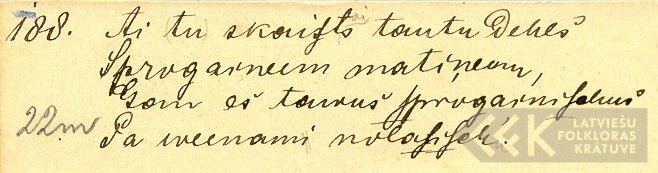 188. Ai tu skaists tautu Dehls
Sprogaineem matiņeem,
Gan eš tawus sprogainischus
Pa weenami nolasischu.
22m
LATVIEŠU
FOLKLORAS
KRĀTUVE